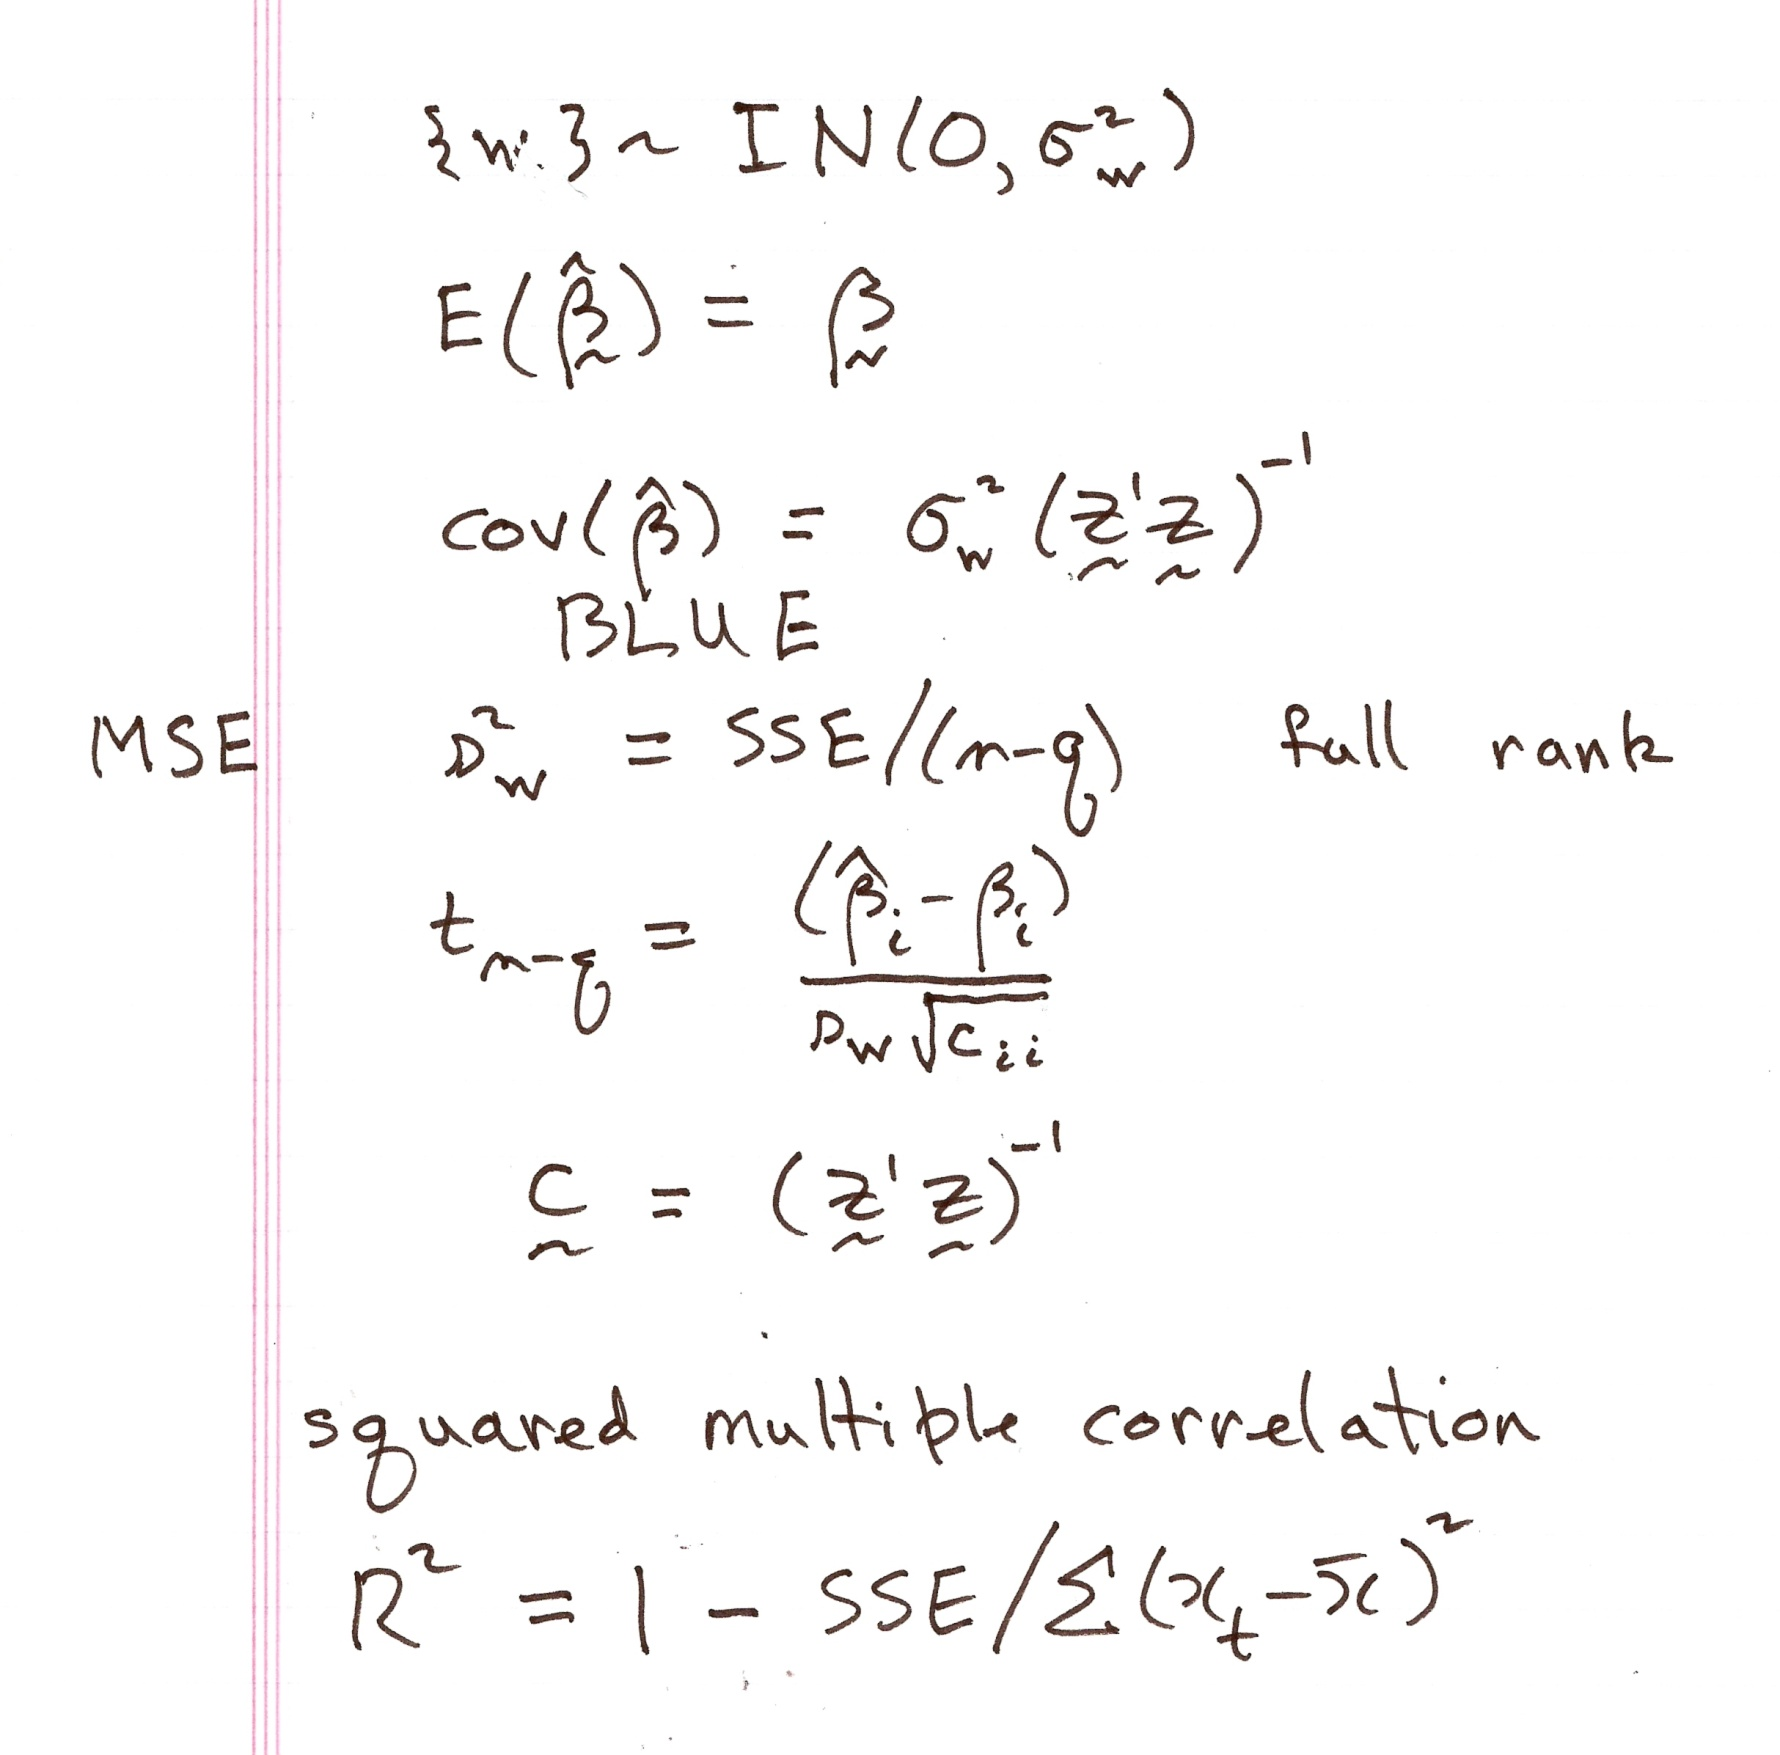 {w.} ~ IN(0, σ²_w)
E(β̂) = β
cov(β̂) = σ²_w (Z'Z)⁻¹
BLUE
MSE s²_w = SSE/(n-q) full rank
t_{n-q} = (β̂_i - β_i) / s_w √c_{ii}
C = (Z'Z)⁻¹
squared multiple correlation
R² = 1 - SSE/Σ(x_t - x̄)²